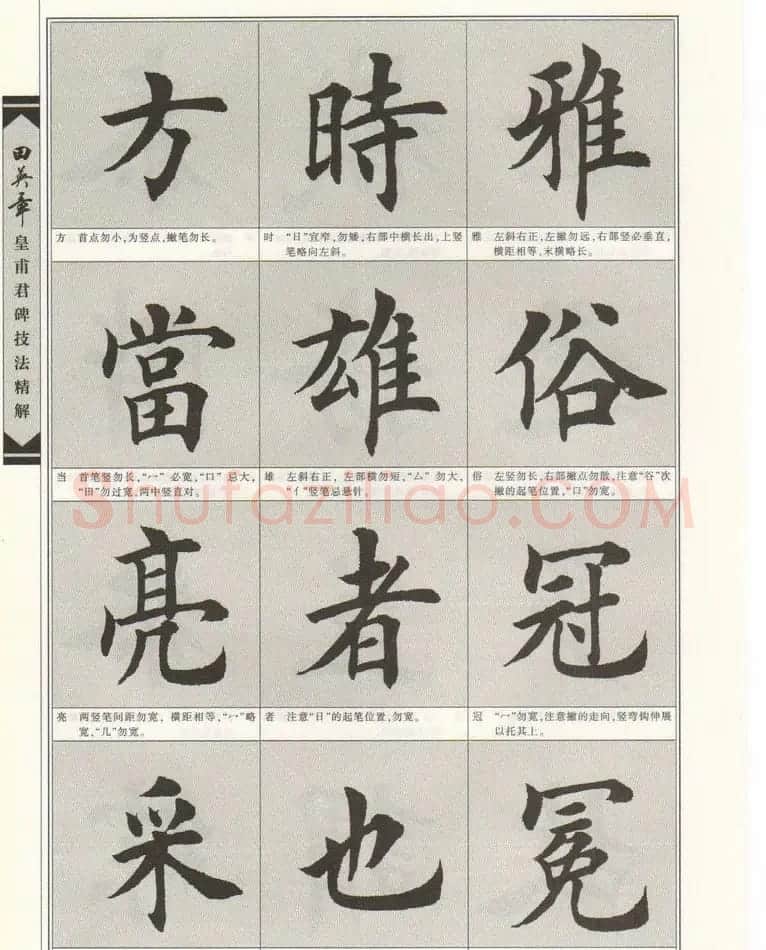 田英章
皇甫君碑技法精解
方 時 雅
方 首点勿小,为竖点,撇笔勿长。
时 “日”宜窄,勿矮,右部中横长出,上竖
笔略向左斜。
雅 左斜右正,左撇勿远,右部竖必垂直,
横距相等,末横略长。
當 雄 俗
当 首笔竖勿长,“冖”必宽,“口”忌大,
“田”勿过宽,两中竖直对。
雄 左斜右正,左部横勿短,“厶”勿大,
“亻”竖笔忌悬针。
俗 左竖勿长,右部撇点勿散,注意“谷”次
撇的起笔位置,“口”勿宽。
Shufaziliao.COM
亮 者 冠
亮 两竖笔间距勿宽,横距相等,“冖”略
宽,“几”勿宽。
者 注意“日”的起笔位置,勿宽。
冠 “冖”勿宽,注意撇的走向,竖弯钩伸展
以托其上。
采 也 冕